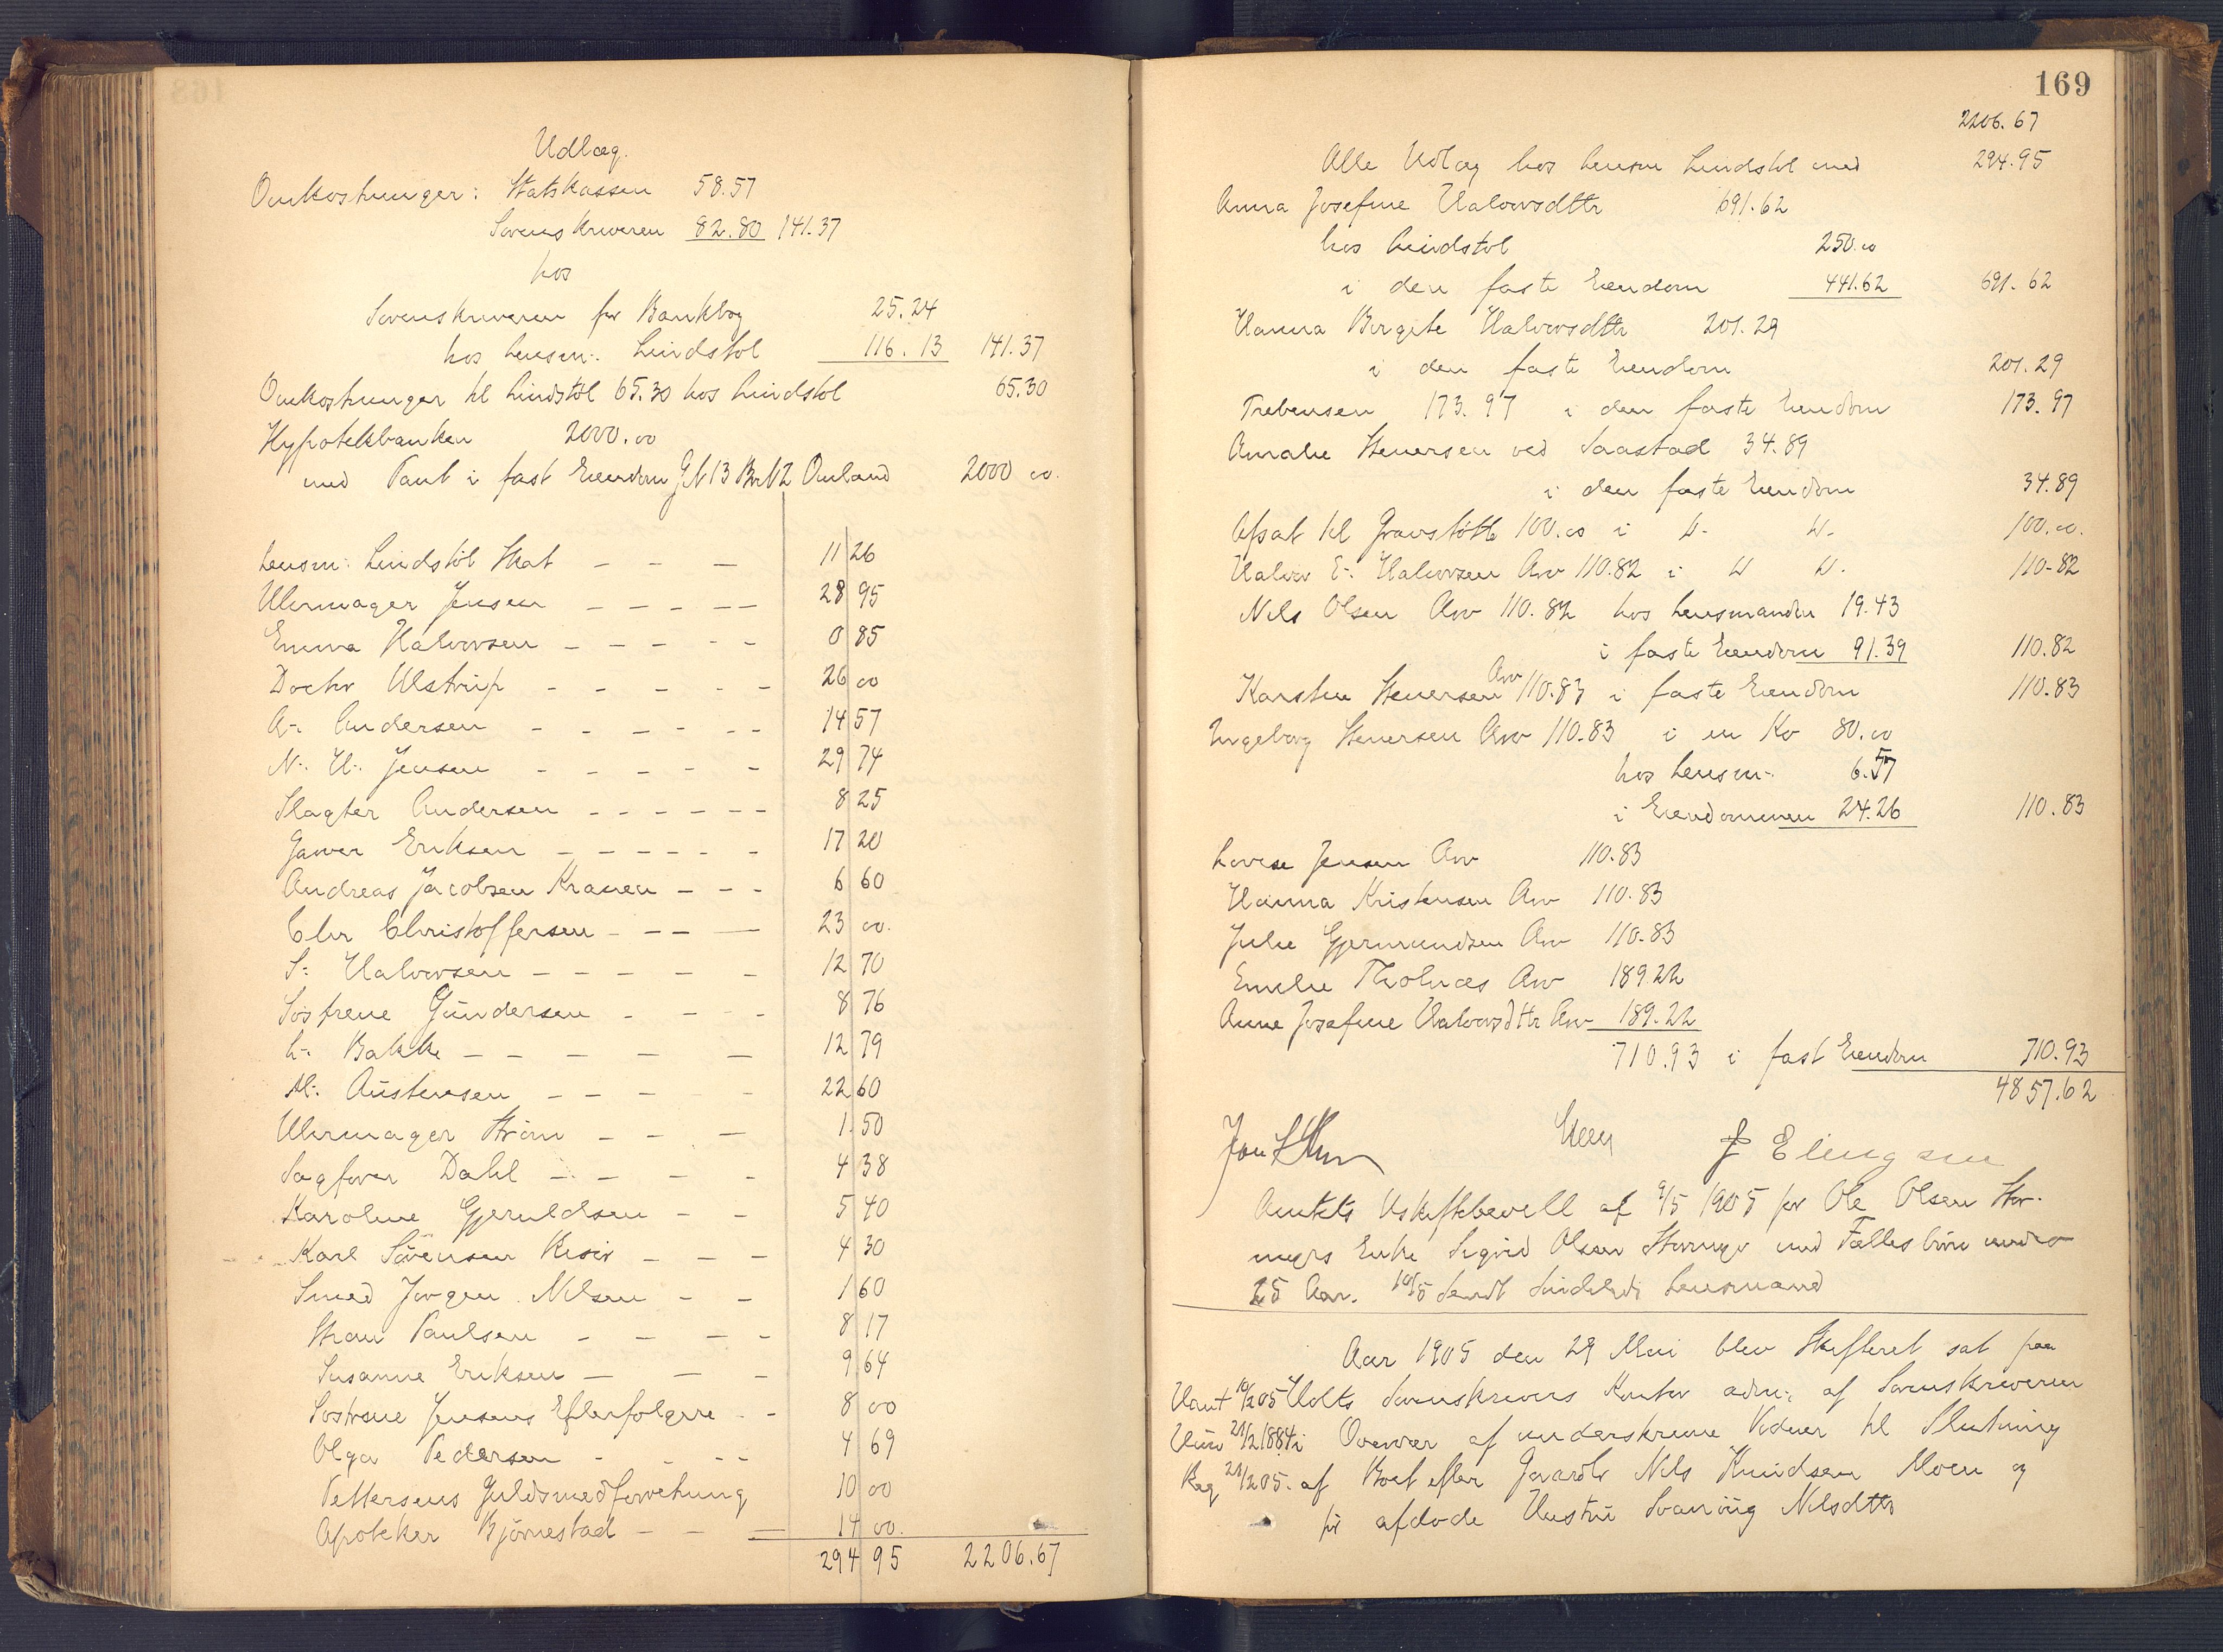 Udlæg.
Omkostninger: Statskassen 58.57
Sorenskriveren 82.80 141.37
hos
Sorenskriveren for Bankbog 25.24
hos Lensm: Lindstøl 116.13 141.37
Omkostninger til Lindstøl 65.30 hos Lindstøl 65.30
Hypotekbanken 2000.00
med Pant i fast Eiendom GN 13 BrN 2 Omland 2000 00.
Lensm: Lindstøl Skat - - - 11 26
Uhrmager Jensen - - - - - 28 95
Emma Halvorsen - - - - - 0 85
Doctor Ulstrup - - - - - 26 00
A. Andersen - - - - - - 14 57
N. H. Jensen - - - - - 29 74
Slagter Andersen - - - - - - 8 25
Garver Eriksen - - - - - - 17 20
Andreas Jacobsen Kranen - - - 6 60
Chr Christoffersen - - - - 23 00.
S: Halvorsen - - - - - 12 70
Søstrene Gündersen - - - - 8 76
L. Bakke - - - - - 12 79
M: Aüstensen - - - - 22 60
Uhrmager Strøm - - - 1.50
Sagfører Dahl - - - - 4 38
Karoline Gjeruldsen - - 5 40
Karl Sörensen Risør - - - 4 30
Smed Jørgen Nilsen - - 1 60
Paulsen - - - - 8 17
Susanne Eriksen - - - 9 64
Søstrene Jensens Efterfølgere - - 8 00
Olga Pedersen - - - - 4 69
Pettersens Guldsmedforretning 10 00
Apoteker Bjørnestad - - - 14 00.
294 95 2206.67
169
2206.67
Alle Udlæg hos Lensm Lindstøl med 294.95
Anna Josefine Halvorsdttr 691.62
hos Lindstøl 250.00
i den faste Eiendom 441.62 691.62
Hanna Birgite Halvorsdttr 201.29
i den faste Eiendom 201.29
Trebensen 173.97 i den faste Eiendom 173.97
Amalie Stenersen ved Saastad 34.89
i den faste Eiendom 34.89
Afsat til Gravstøtte 100.00 i 100.00.
Halvor E. Halvorsen Arv 110.82 i 110.82
Nils Olsen Arv 110.82 hos Lensmanden 19.43
i faste Eiendom 91.39 110.82
Karstine Stenersen Arv 110.83 i faste Eiendom 110.83
Ingeborg Stenersen Arv 110.83 i en Ko 80.00
hos Lensm. 6.57
i Eiendommen 24.26 110.83
Lovise Jensen Arv 110.83
Hanna Kristensen Arv 110.83
Julie Gjermundsen Arv 110.83
Emilie Tholnæs Arv 189.22
Anne Josefine Halvorsdttr Arv 189.22
710.93 i fast Eiendom 710.93
4857.62
J Elingsen
Amtets Uskiftebevill af 9/5 1905 for Ole Olsen
Enke Sigrid Olsen med Fælles børn under
25 Aar. 10/5 sendt Lensmand
Aar 1905 den 29 Mai blev Skifteret sat paa
10/2 05 Holts Sorenskrivers Kontor adm: af Sorenskriveren
21/2 1884 i Overvær af underskrevne Vidner til Slutning
Reg 21/2 05. af Boet efter Gaardbr Nils Knüdsen Moen og
før afdøde Hustrü Nilsdttr